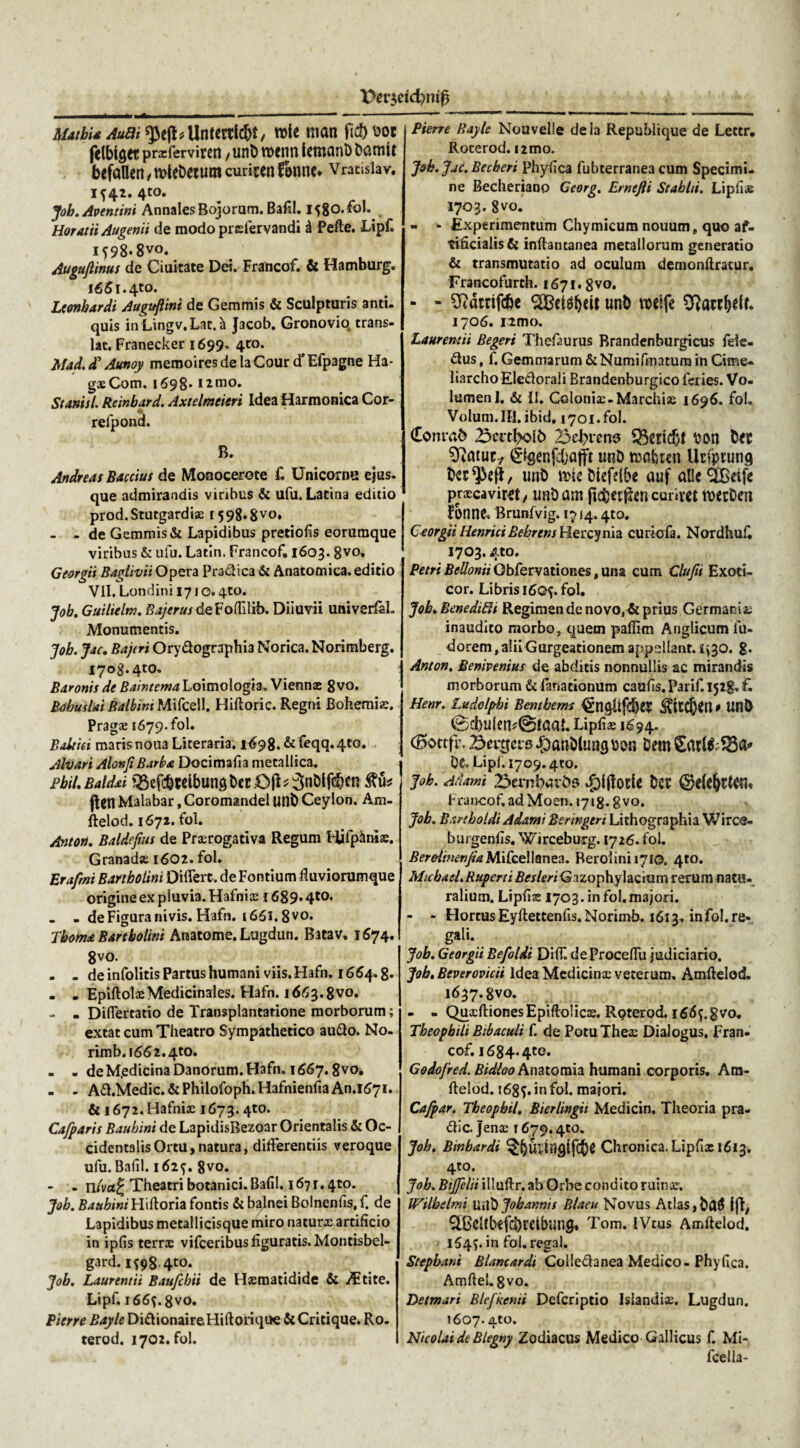 Verzeichniß
Mathiæ Aucti Pest-Unterricht, wie man sich vor
selbiger præserviren, und wenn iemand damit
befallen, wiederum curiren könne. Vratislav.
1542. 4to.
Joh. Aventini Annales Bojorum. Basil. 1580. fol.
Horatii Augenii de modo præservandi à Peste. Lipf.
1598. 8vo.
Augustinus de Ciuitate Dei. Francof. & Hamburg.
1661. 4to.
Leonhardi Augustini de Gemmis & Sculpturis anti-
quis in Lingv. Lat. à Jacob. Gronovio trans-
lat. Franecker 1699. 4to.
Mad. d' Aunoy memoires de la Cour d' Espagne Ha-
gæ Com. 1698. 12mo.
Stanisl. Reinhard. Axtelmeieri Idea Harmonica Cor-
respond.
B.
Andreas Baccius de Monocerote s. Unicornu ejus-
que admirandis viribus & usu. Latina editio
prod. Stutgardiæ 1598. 8vo.
- - de Gemmis & Lapidibus pretiosis eorumque
viribus & usu. Latin. Francof. 1603. 8vo.
Georgii Baglivii Opera Practica & Anatomica. editio
VII. Londini 1710. 4to.
Joh. Guilielm. Bajerus de Fossilib. Diluvii universal.
Monumentis.
Joh. Jac. Bajeri Oryctographia Norica. Norimberg.
1708. 4to.
Baronis de Baintema Loimologia. Viennæ 8vo.
Bohuslai Balbini Miscell. Historic. Regni Bohemiæ.
Pragæ 1679. fol.
Baltici maris noua Literaria. 1698. & seqq. 4to.
Alvari Alonsi Barba Docimasia metallica.
Phil. Baldæi Beschreibung der Ost-Indischen Kü-
sten Malabar, Coromandel und Ceylon. Am-
stelod. 1672. fol.
Anton. Baldesius de Prærogativa Regum Hispániæ.
Granadæ 1602. fol.
Erasmi Bartholini Dissert. de Fontium fluviorumque
origine ex pluvia. Hafniæ 1689. 4to.
- - de Figura nivis. Hafn. 1661. 8vo.
Thomæ Bartholini Anatome. Lugdun. Batav. 1674.
8vo.
- - de insolitis Partus humani viis. Hafn. 1664. 8.
- - Epistolæ Medicinales. Hafn. 1663. 8vo.
- - Dissertatio de Transplantatione morborum;
extat cum Theatro Sympathetico aucto. No-
rimb. 1662. 4to.
- - de Medicina Danorum. Hafn. 1667. 8vo.
- - Act. Medic. & Philosoph. Hafniensia An. 1671.
& 1672. Hafniæ 1673. 4to.
Casparis Bauhini de Lapidis Bezoar Orientalis & Oc-
cidentalis Ortu, natura, differentiis veroque
usu. Basil. 1625. 8vo.
- - πίναξ Theatri botanici. Basil. 1671. 4to.
Joh. Bauhini Historia fontis & balnei Bolnensis, s. de
Lapidibus metallicisque miro naturæ artificio
in ipsis terræ visceribus figuratis. Montisbel-
gard. 1598. 4to.
Joh. Laurentii Bauschii de Hæmatidide & Ætite.
Lipf. 1665. 8vo.
Pierre Bayle Dictionaire Historique & Critique. Ro-
terod. 1702. fol.
Pierre Bayle Nouvelle de la Republique de Lettr.
Roterod. 12mo.
Joh. Jac. Becheri Physica subterranea cum Specimi-
ne Becheriano Georg. Ernesti Stahlii. Lipsiæ
1703. 8vo.
- - Experimentum Chymicum nouum, quo af-
tificialis & instantanea metallorum generatio
& transmutatio ad oculum demonstratur.
Francofurth. 1671. 8vo.
- - Närrische Weisheit und weise Narrheit.
1706. 12mo.
Laurentii Begeri Thesaurus Brandenburgicus sele-
ctus, s. Gemmarum & Numismatum in Cime-
liarcho Electorali Brandenburgico series. Vo-
lumen I. & II. Coloniæ-Marchiæ 1696. fol.
Volum. III. ibid. 1701. fol.
Conrad Berthold Behrens Bericht von der
Natur, Eigenschafft und wahren Ursprung
der Pest, und wie dieselbe auf alle Weise
præcaviret, und am sichersten curiret werden
könne. Brunsvig. 1714. 4to.
Georgii Henrici Behrens Hercynia curiosa. Nordhus.
1703. 4to.
Petri Bellonii Observationes, una cum Clusii Exoti-
cor. Libris 1605. fol.
Joh. Benedicti Regimen de novo, & prius Germaniæ
inaudito morbo, quem passim Anglicum su-
dorem, alii Gurgeationem appellant. 1530. 8.
Anton. Benivenius de abditis nonnullis ac mirandis
morborum & sanationum causis. Paris. 1528. f.
Henr. Ludolphi Benthems Englischer Kirchen- und
Schulen-Staat. Lipsiæ 1694.
Gottfr. Bergers Handlung von dem Carls-Ba-
de. Lips. 1709. 4to.
Joh. Adami Bernhards Historie der Gelehrten.
Francof. ad Moen. 1718. 8vo.
Joh. Bartholdi Adami Beringeri Lithographia Wirce-
burgensis. Wirceburg. 1726. fol.
Berolinensia Miscellanea. Berolini 1710. 4to.
Michael. Ruperti Besleri Gazophylacium rerum natu-
ralium. Lipsiæ 1703. in fol. majori.
- - Hortus Eystettensis. Norimb. 1613. in fol. re-
gali.
Joh. Georgii Besoldi Diss. de Processu judiciario.
Joh. Beverovicii Idea Medicinæ veterum. Amstelod.
1637. 8vo.
- - Quæstiones Epistolicæ. Roterod. 1665. 8vo.
Theophili Bibaculi s. de Potu Theæ Dialogus. Fran-
cof. 1684. 4to.
Godofred. Bidloo Anatomia humani corporis. Am-
stelod. 1685. in fol. majori.
Caspar. Theophil. Bierlingii Medicin. Theoria pra-
ctic. Jenæ 1679. 4to.
Joh. Binhardi Thüringische Chronica. Lipsiæ 1613.
4to.
Joh. Bisselii illustr. ab Orbe condito ruinæ.
Wilhelmi und Johannis Blaeu Novus Atlas, das ist,
Weltbeschreibung. Tom. IVtus Amstelod.
1645. in fol. regal.
Stephani Blancardi Collectanea Medico-Physica.
Amstel. 8vo.
Detmari Blefkenii Descriptio Islandiæ. Lugdun.
1607. 4to.
Nicolai de Blegny Zodiacus Medico Gallicus s. Mi-
scella-